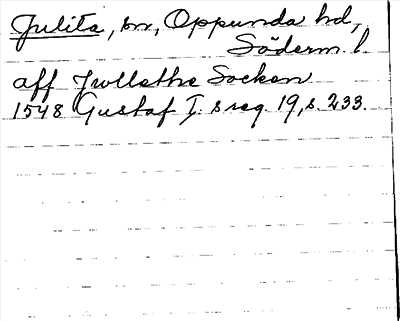 Julita, sn, Oppunda hd,
Söderm. l.
aff Jwllethe Socken
1548 Gustaf I:s reg. 19, s. 233.